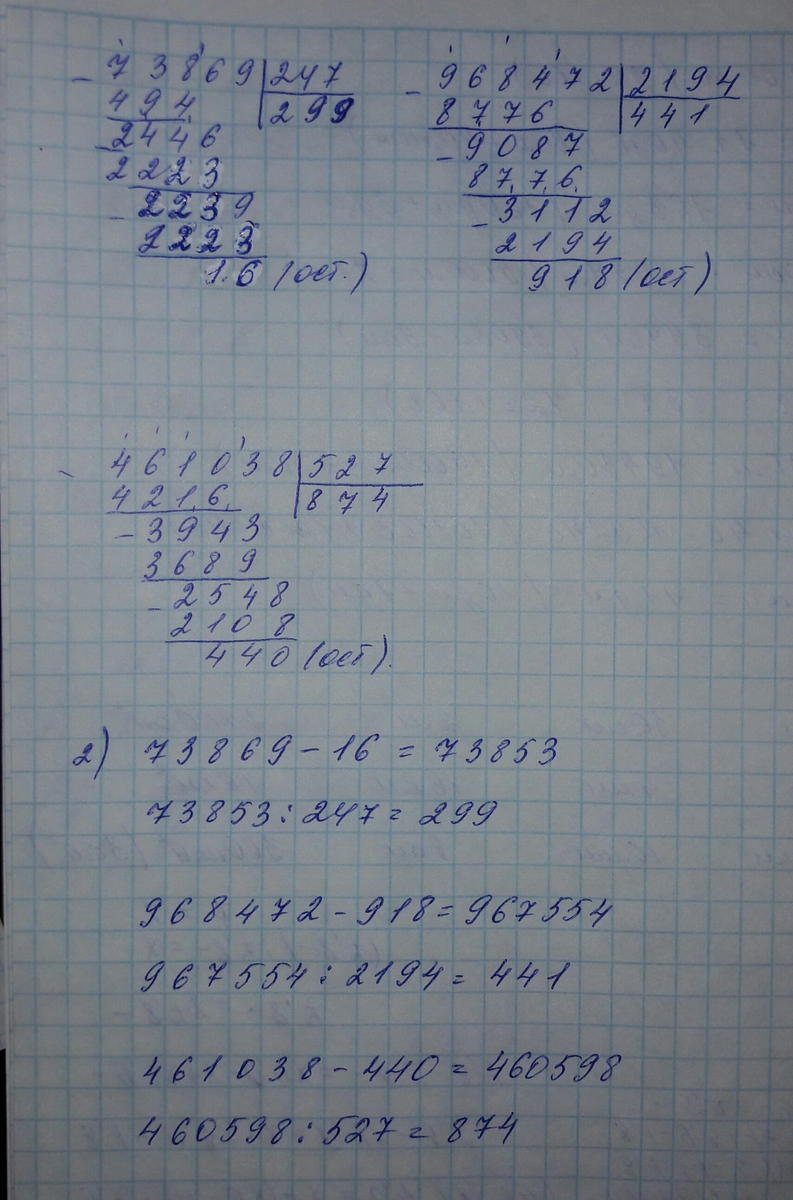 73869 | 247
494 | 299
- 2446
2223
- 2239
2223
16 (ост.)
- 968472 | 2194
8776 | 441
- 9087
8776
- 3112
2194
918 (ост)
- 461038 | 527
4216 | 874
- 3943
3689
- 2548
2108
440 (ост).
2) 73869 - 16 = 73853
73853 : 247 = 299
968472 - 918 = 967554
967554 : 2194 = 441
461038 - 440 = 460598
460598 : 527 = 874